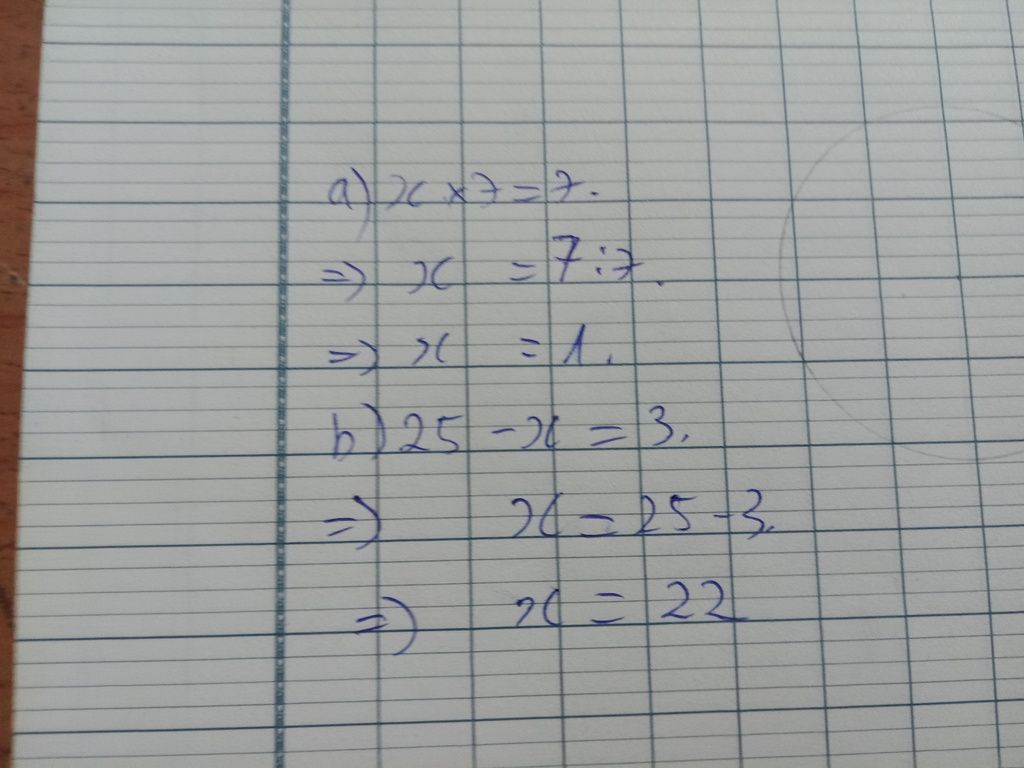 a) x × 7 = 7.
=> x = 7 : 7.
=> x = 1.
b) 25 - x = 3.
=> x = 25 - 3.
=> x = 22